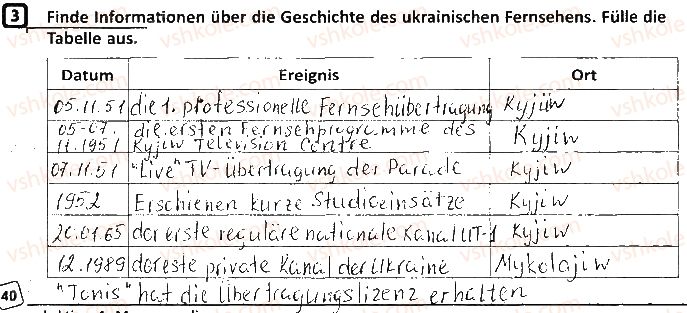 3 Finde Informationen über die Geschichte des ukrainischen Fernsehens. Fülle die
Tabelle aus.
Datum Ereignis Ort
05.11.51 die 1. professionelle Fernsehübertragung Kyjiw
05-07. die ersten Fernsehprogramme des
11.1951 Kyjiw Television Centre Kyjiw
07.11.51 "Live" TV-Übertragung der Parade Kyjiw
1952 Erschienen kurze Studioeinsätze Kyjiw
20.01.65 der erste reguläre nationale Kanal UT-1 Kyjiw
12.1989 der erste private Kanal der Ukraine Mykolajiw
40 "Tonis" hat die Übertragungslizenz erhalten